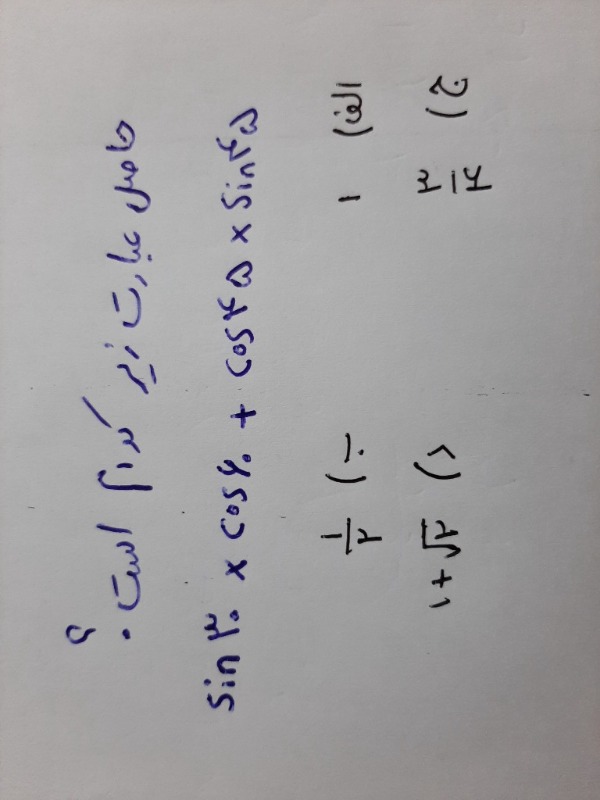 حاصل عبارت زیر کدام است؟
sin ۳۰ × cos ۶۰ + cos ۴۵ × sin ۴۵
الف) ۱ ب) ۱/۲
ج) ۳/۴ د) ۱+√۲